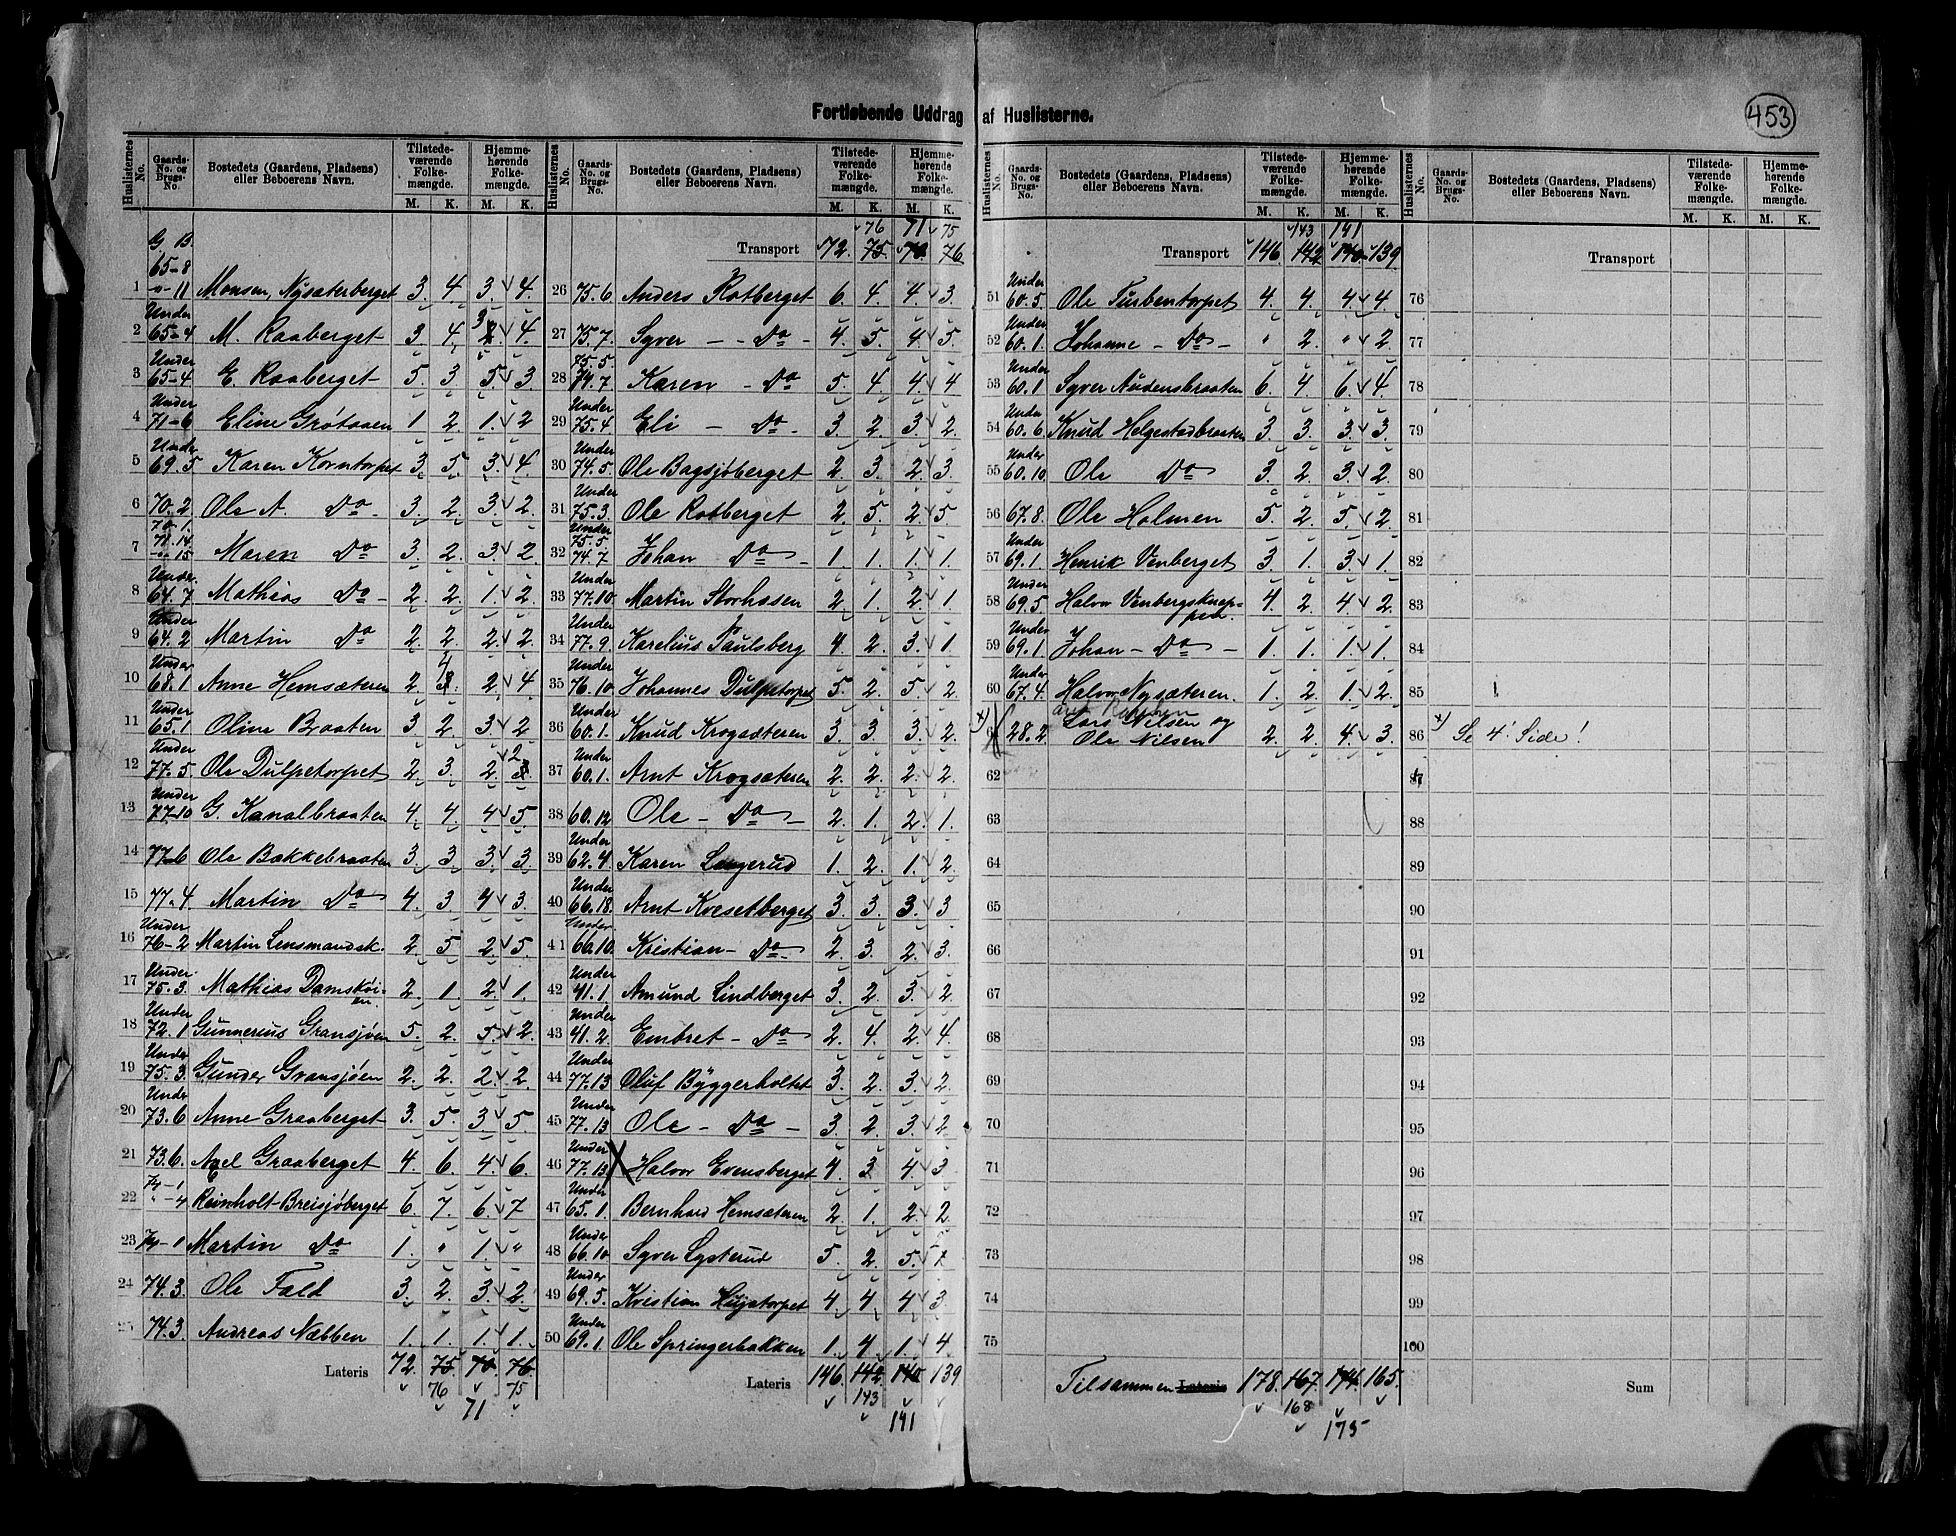 Fortløbende Uddrag af Huslisterne.
453
Huslisternes No. Gaards-No. og Brugs-No. Bostedets (Gaardens, Pladsens) eller Beboerens Navn. Tilstedeværende Folkemængde. M. K. Hjemmehørende Folkemængde. M. K.
G B.
65-8
1 -"- 11 Monsen, Nysæterberget 3. 4. 3. 4.
2 Under 65-4 M. Raaberget 3. 4. 3 4.
3 Under 65-4 E. Raaberget 5. 3. 5. 3
4 Under 71-6 Eline Grøtaaen 1. 2. 1. 2
5 Under 69.5 Karen Korntorpet 3. 5. 3. 4.
6 70.2 Ole A. Do 3. 2. 3. 2.
70.1.
71.14
7 -"- 15 Maren Do 3. 2. 3. 2.
8 Under 64.7 Mathias Do 2. 2. 1. 2.
9 Under 64.2 Martin Do 2. 2. 2. 2.
10 Under 68.1 Anne Hemsæteren 2. 4 2. 4.
11 Under 65.1 Oline Braaten 3. 2. 3. 2
12 Under 77.5 Ole Dulpetorpet 2. 3. 2. 2
13 Under 77-10 G. Kanalbraaten 4. 4. 4. 5.
14 77-6 Ole Bakkebraaten 3. 3. 3. 3.
15 77.4 Martin Do 4. 3. 4. 3.
16 Under 76-2 Martin Lensmandsk. 2. 5. 2. 5.
17 Under 75.3. Mathias Damskøien 2. 1. 2. 1.
18 Under 72.1 Gunnerius Gransjøen 5. 2. 5. 2.
19 Under 75.3. Gunder Gransjøen 2. 2. 2. 2.
20 Under 73.6 Anne Graaberget 3. 5. 3. 5.
21 73.6. Axel Graaberget 4. 6. 4. 6.
74-1
22 " -4 Reinholt Breisjøberget 6. 7. 6. 7
23 74-1 Martin Do 1. " 1. "
24 74.3. Ole Fald 3. 2. 3. 2.
25 74.3. Andreas Næbben 1. 1. 1. 1.
Lateris 72. 75. 70. 76.
76 75
71
Huslisternes No. Gaards-No. og Brugs-No. Bostedets (Gaardens, Pladsens) eller Beboerens Navn. Tilstedeværende Folkemængde. M. K. Hjemmehørende Folkemængde. M. K.
76 71 75
Transport 72. 75. 70 76.
26 75.6. Anders Rotberget 6. 4. 4. 3.
27 75.7. Syver - Do - 4. 5. 4. 5.
28 75.5 74.7 Karen - Do 5. 4. 4. 4
29 Under 75.4 Eli - Do - 3. 2. 3. 2.
30 Under 74.5 Ole Bagsjøberget 2. 3. 2. 3
31 Under 75.3 Ole Rotberget 2. 5. 2. 5
32 Under 75.5 74.7 Johan Do - 1. 1. 1. 1.
33 Under 77.10 Martin Storhasen 2. 1. 2. 1
34 Under 77.9 Karelius Paulsberg 4. 2. 3. 1.
35 Under 76.10 Johannes Dulpetorpet 5. 2. 5. 2
36 Under 60.1. Knud Krogsæteren 3. 3. 3. 2.
37 Under 60.1. Arnt Krogsæteren 2. 2. 2. 2
38 60.12 Ole - Do - 2. 1. 2. 1.
39 Under 62.4 Karen Langerud 1. 2. 1. 2.
40 Under 66.18. Arnt Kvesetberget 3. 3. 3. 3
41 Under 66.10. Kristian - Do - 2. 3. 2. 3.
42 Under 41.1 Amund Lindberget 3. 2. 3. 2.
43 Under 41.2. Embret - Do 2. 4. 2. 4.
44 Under 77.13 Oluf Byggerholtet 3. 2. 3. 2.
45 Under 77.13 Ole - Do - 3. 2. 3. 2
46 Under 77.13 X Halvor Evensberget 4. 3 4. 3
47 Under 65.1. Bernhard Hemsæteren 2. 1. 2. 2
48 Under 66.10 Syver Lysterud 5. 2. 5.
49 Under 69.5. Kristian 4. 4. 4. 3.
50 Under 69.1. Ole Springerbakken 1. 4. 1. 4.
Lateris 146. 142 140 139
143
141
Huslisternes No. Gaards-No. og Brugs-No. Bostedets (Gaardens, Pladsens) eller Beboerens Navn. Tilstedeværende Folkemængde. M. K. Hjemmehørende Folkemængde. M. K.
143 141
Transport 146. 142 140 139
51 Under 60.5. Ole Turbentorpet 4. 4. 4. 4.
52 Under 60.1. Johanne - Do - " 2. " 2.
53 Under 60.1 Syver Audensbraaten 6. 4. 6. 4.
54 Under 60.6 Knud Helgestadbraaten 3. 3. 3. 3.
55 Under 60.10. Ole Do 3. 2. 3. 2.
56 67.8. Ole Holmen 5. 2. 5. 2.
57 Under 69.1. Henrik Venberget 3. 1. 3. 1.
58 Under 69.5. Halvor Venbergsknappen. 4. 2. 4. 2.
59 Under 69.1. Johan - Do - 1. 1. 1. 1.
60 Under 67.4. Halvor Nysæteren. 1. 2. 1. 2.
x) 28.2. Lars Nilsen og
Ole Nilsen 2. 2. 4. 3.
62
63
64
65
66
67
68
69
70
71
72
73
74
75
Tilsammen Lateris 178. 167. 174. 165.
168
175
Huslisternes No. Gaards-No. og Brugs-No. Bostedets (Gaardens, Pladsens) eller Beboerens Navn. Tilstedeværende Folkemængde. M. K. Hjemmehørende Folkemængde. M. K.
Transport
76
77
78
79
80
81
82
83
84
85
86 x) Se 4' Side!
87
88
89
90
91
92
93
94
95
96
97
98
99
100
Sum